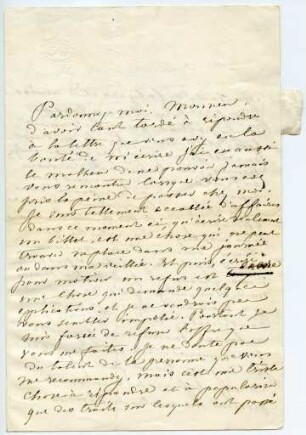 Pardonnez-moi, Monsieur,
d'avoir tant tardé à répondre
à la lettre que vous avez eu la
bonté de m'écrire. J'ai eu aussi
le malheur de ne pouvoir jamais
vous rencontrer lorsque vous avez
pris la peine de passer chez moi.
Je suis tellement accablée d'affaires
dans ce moment ci, qu'écrire seulement
un billet est une chose qui ne peut
trouver sa place dans une journée
ou dans ma veillée. Et puis, écrire
pour motiver un refus est
une chose qui demande quelque
explication, et je ne voudrais pas
vous sembler impolie. Pourtant je
suis forcée de refuser l'offre que
vous me faites. Je ne doute pas
du talent de la personne que vous
me recommandez, mais c'est une triste
chose à répandre et à populariser
que des traits sur lesquels ont passé